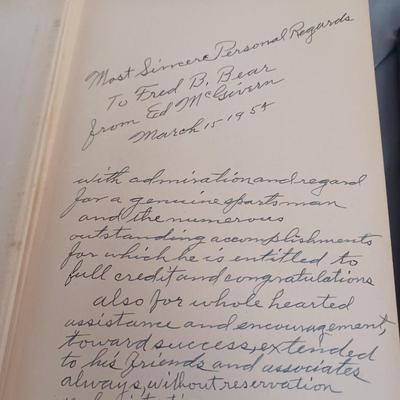 Most Sincere Personal Regards
To Fred B. Bear
from Ed McGivern
March 15 1954
with admiration and regard
for a genuine sportsman
and the numerous
outstanding accomplishments
for which he is entitled to
full credit and congratulations
also for whole hearted
assistance and encouragement,
toward success, extended
to his friends and associates
always, without reservation